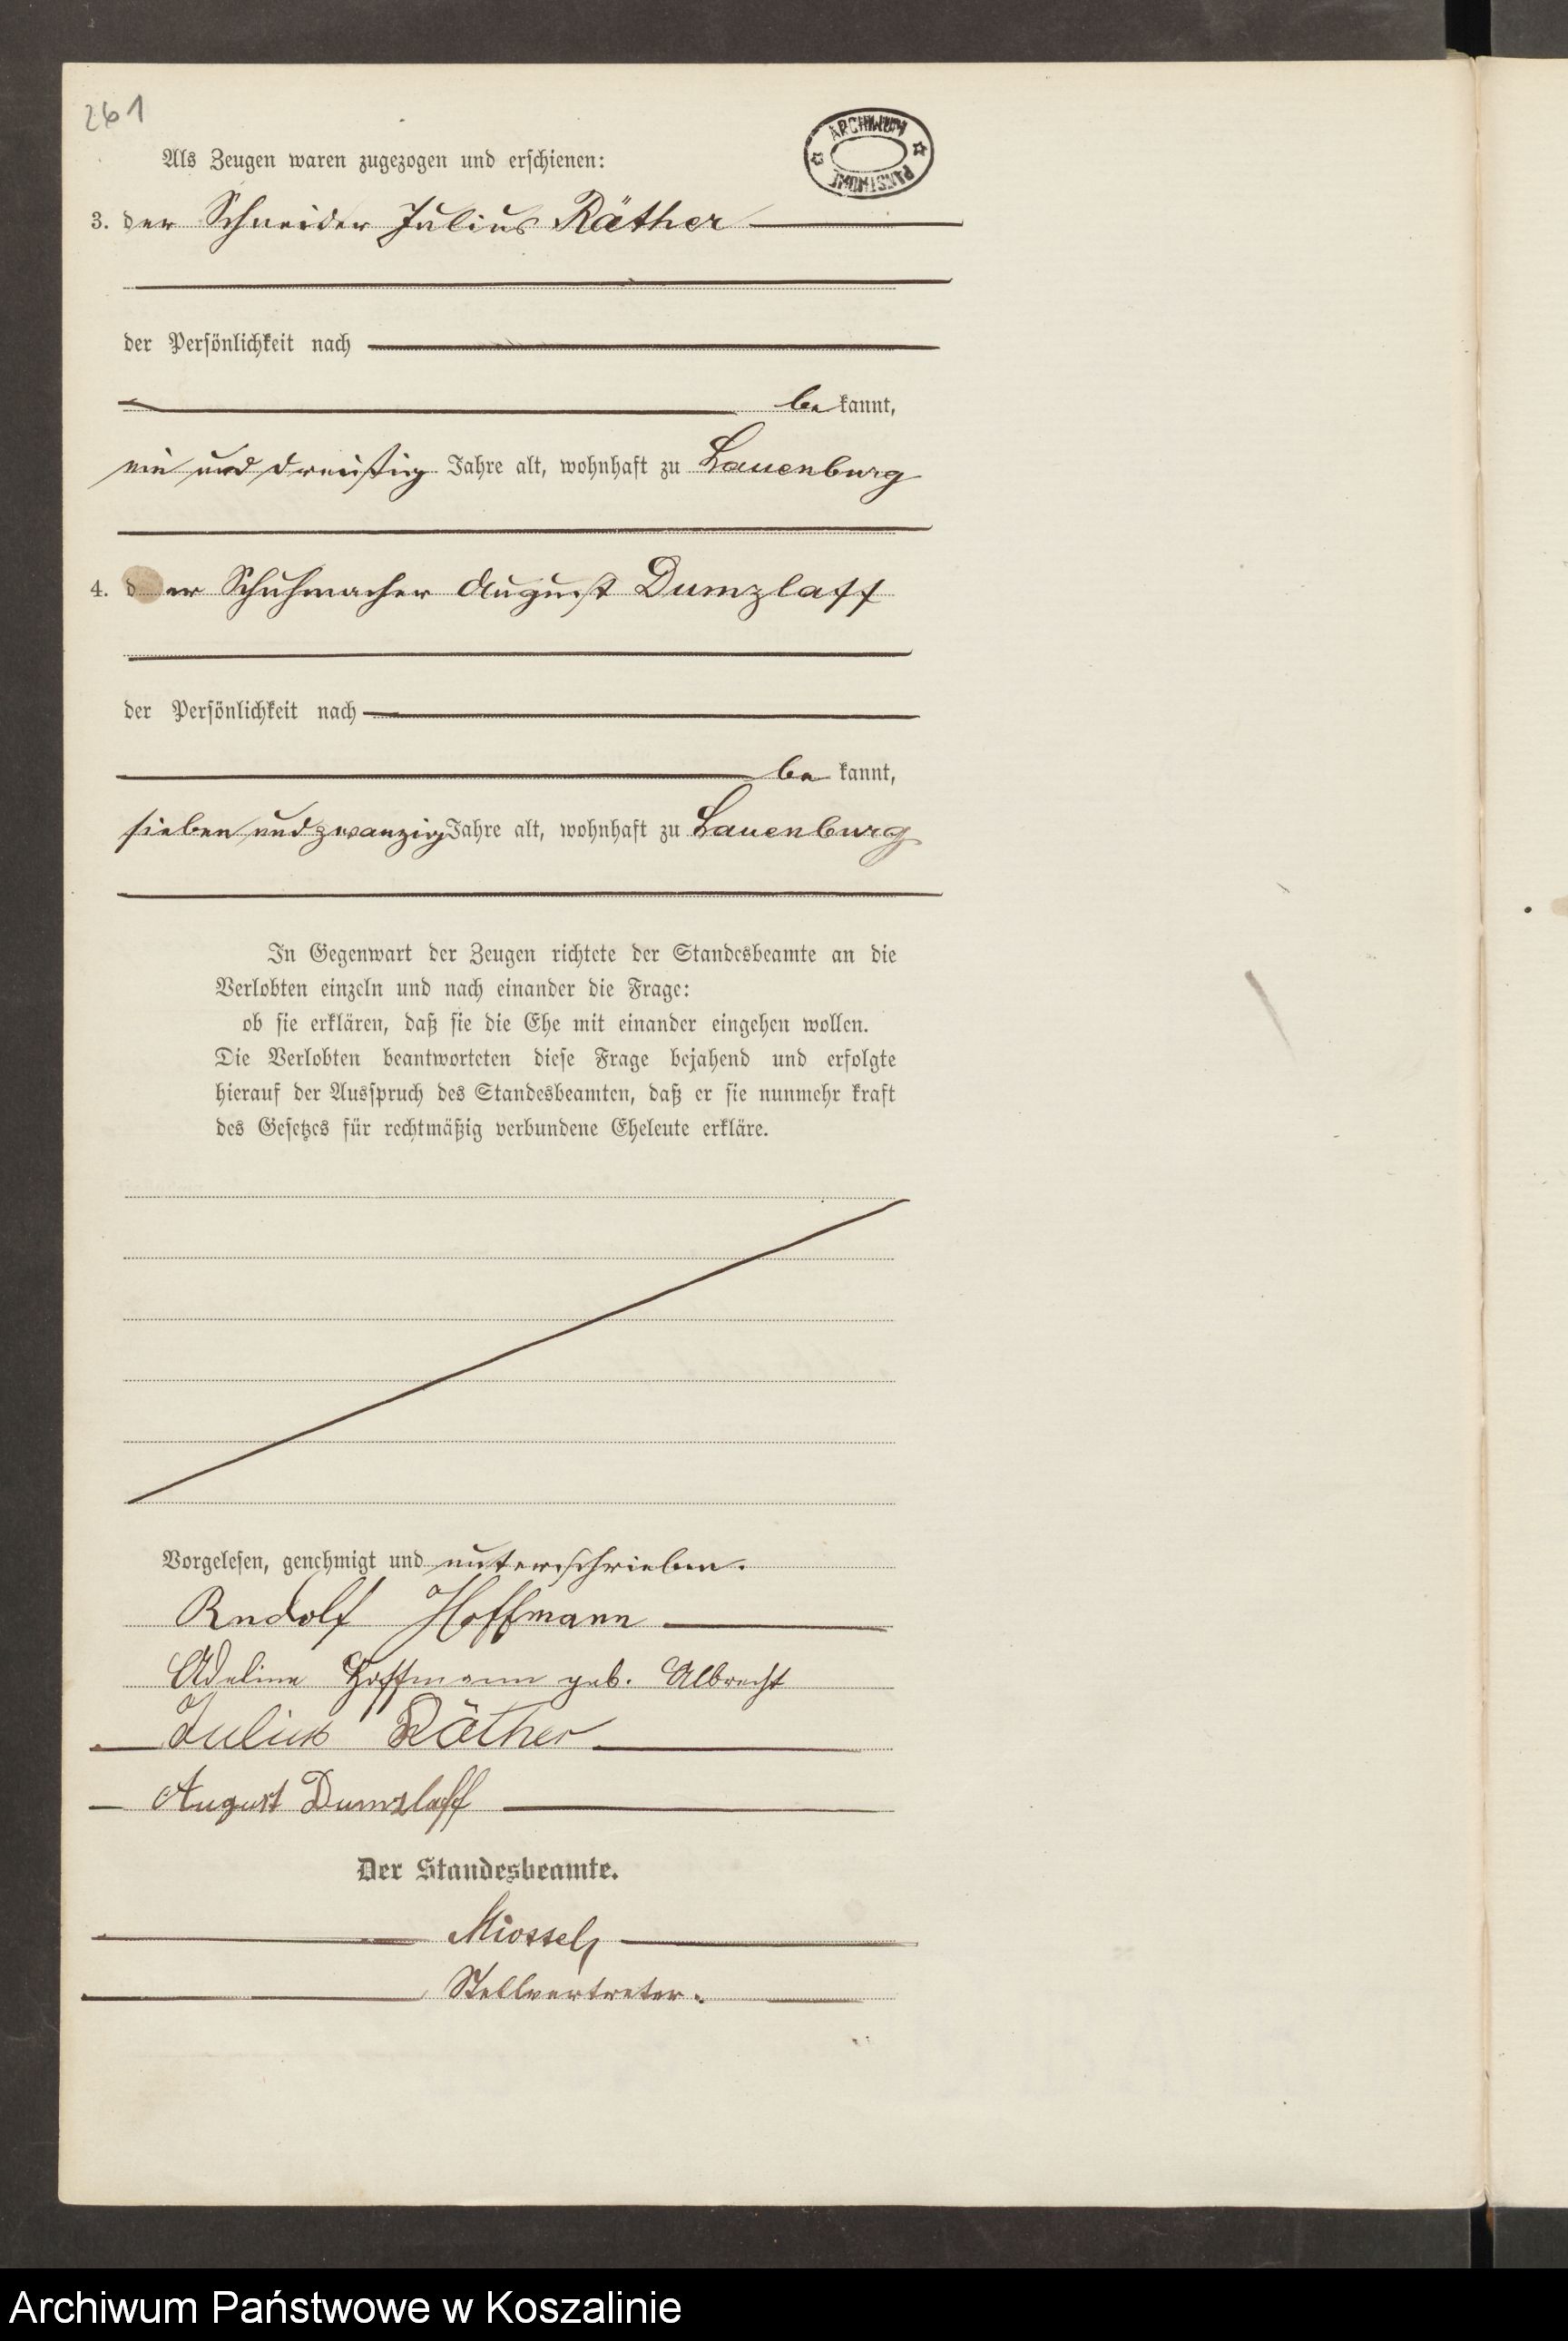 261
ARCHIWUM PAŃSTWOWE
Als Zeugen waren zugezogen und erschienen:
3. der Schneider Julius Räther
der Persönlichkeit nach
be kannt,
ein und dreißig Jahre alt, wohnhaft zu Lauenburg
4. der Schuhmacher August Dumzlaff
der Persönlichkeit nach
be kannt,
sieben und zwanzig Jahre alt, wohnhaft zu Lauenburg
In Gegenwart der Zeugen richtete der Standesbeamte an die
Verlobten einzeln und nach einander die Frage:
ob sie erklären, daß sie die Ehe mit einander eingehen wollen.
Die Verlobten beantworteten diese Frage bejahend und erfolgte
hierauf der Ausspruch des Standesbeamten, daß er sie nunmehr kraft
des Gesetzes für rechtmäßig verbundene Eheleute erkläre.
Vorgelesen, genehmigt und unterschrieben.
Rudolf Hoffmann
Adeline Hoffmann geb. Albrecht
Julius Räther
August Dumzlaff
Der Standesbeamte.
Stellvertreter.
Archiwum Państwowe w Koszalinie